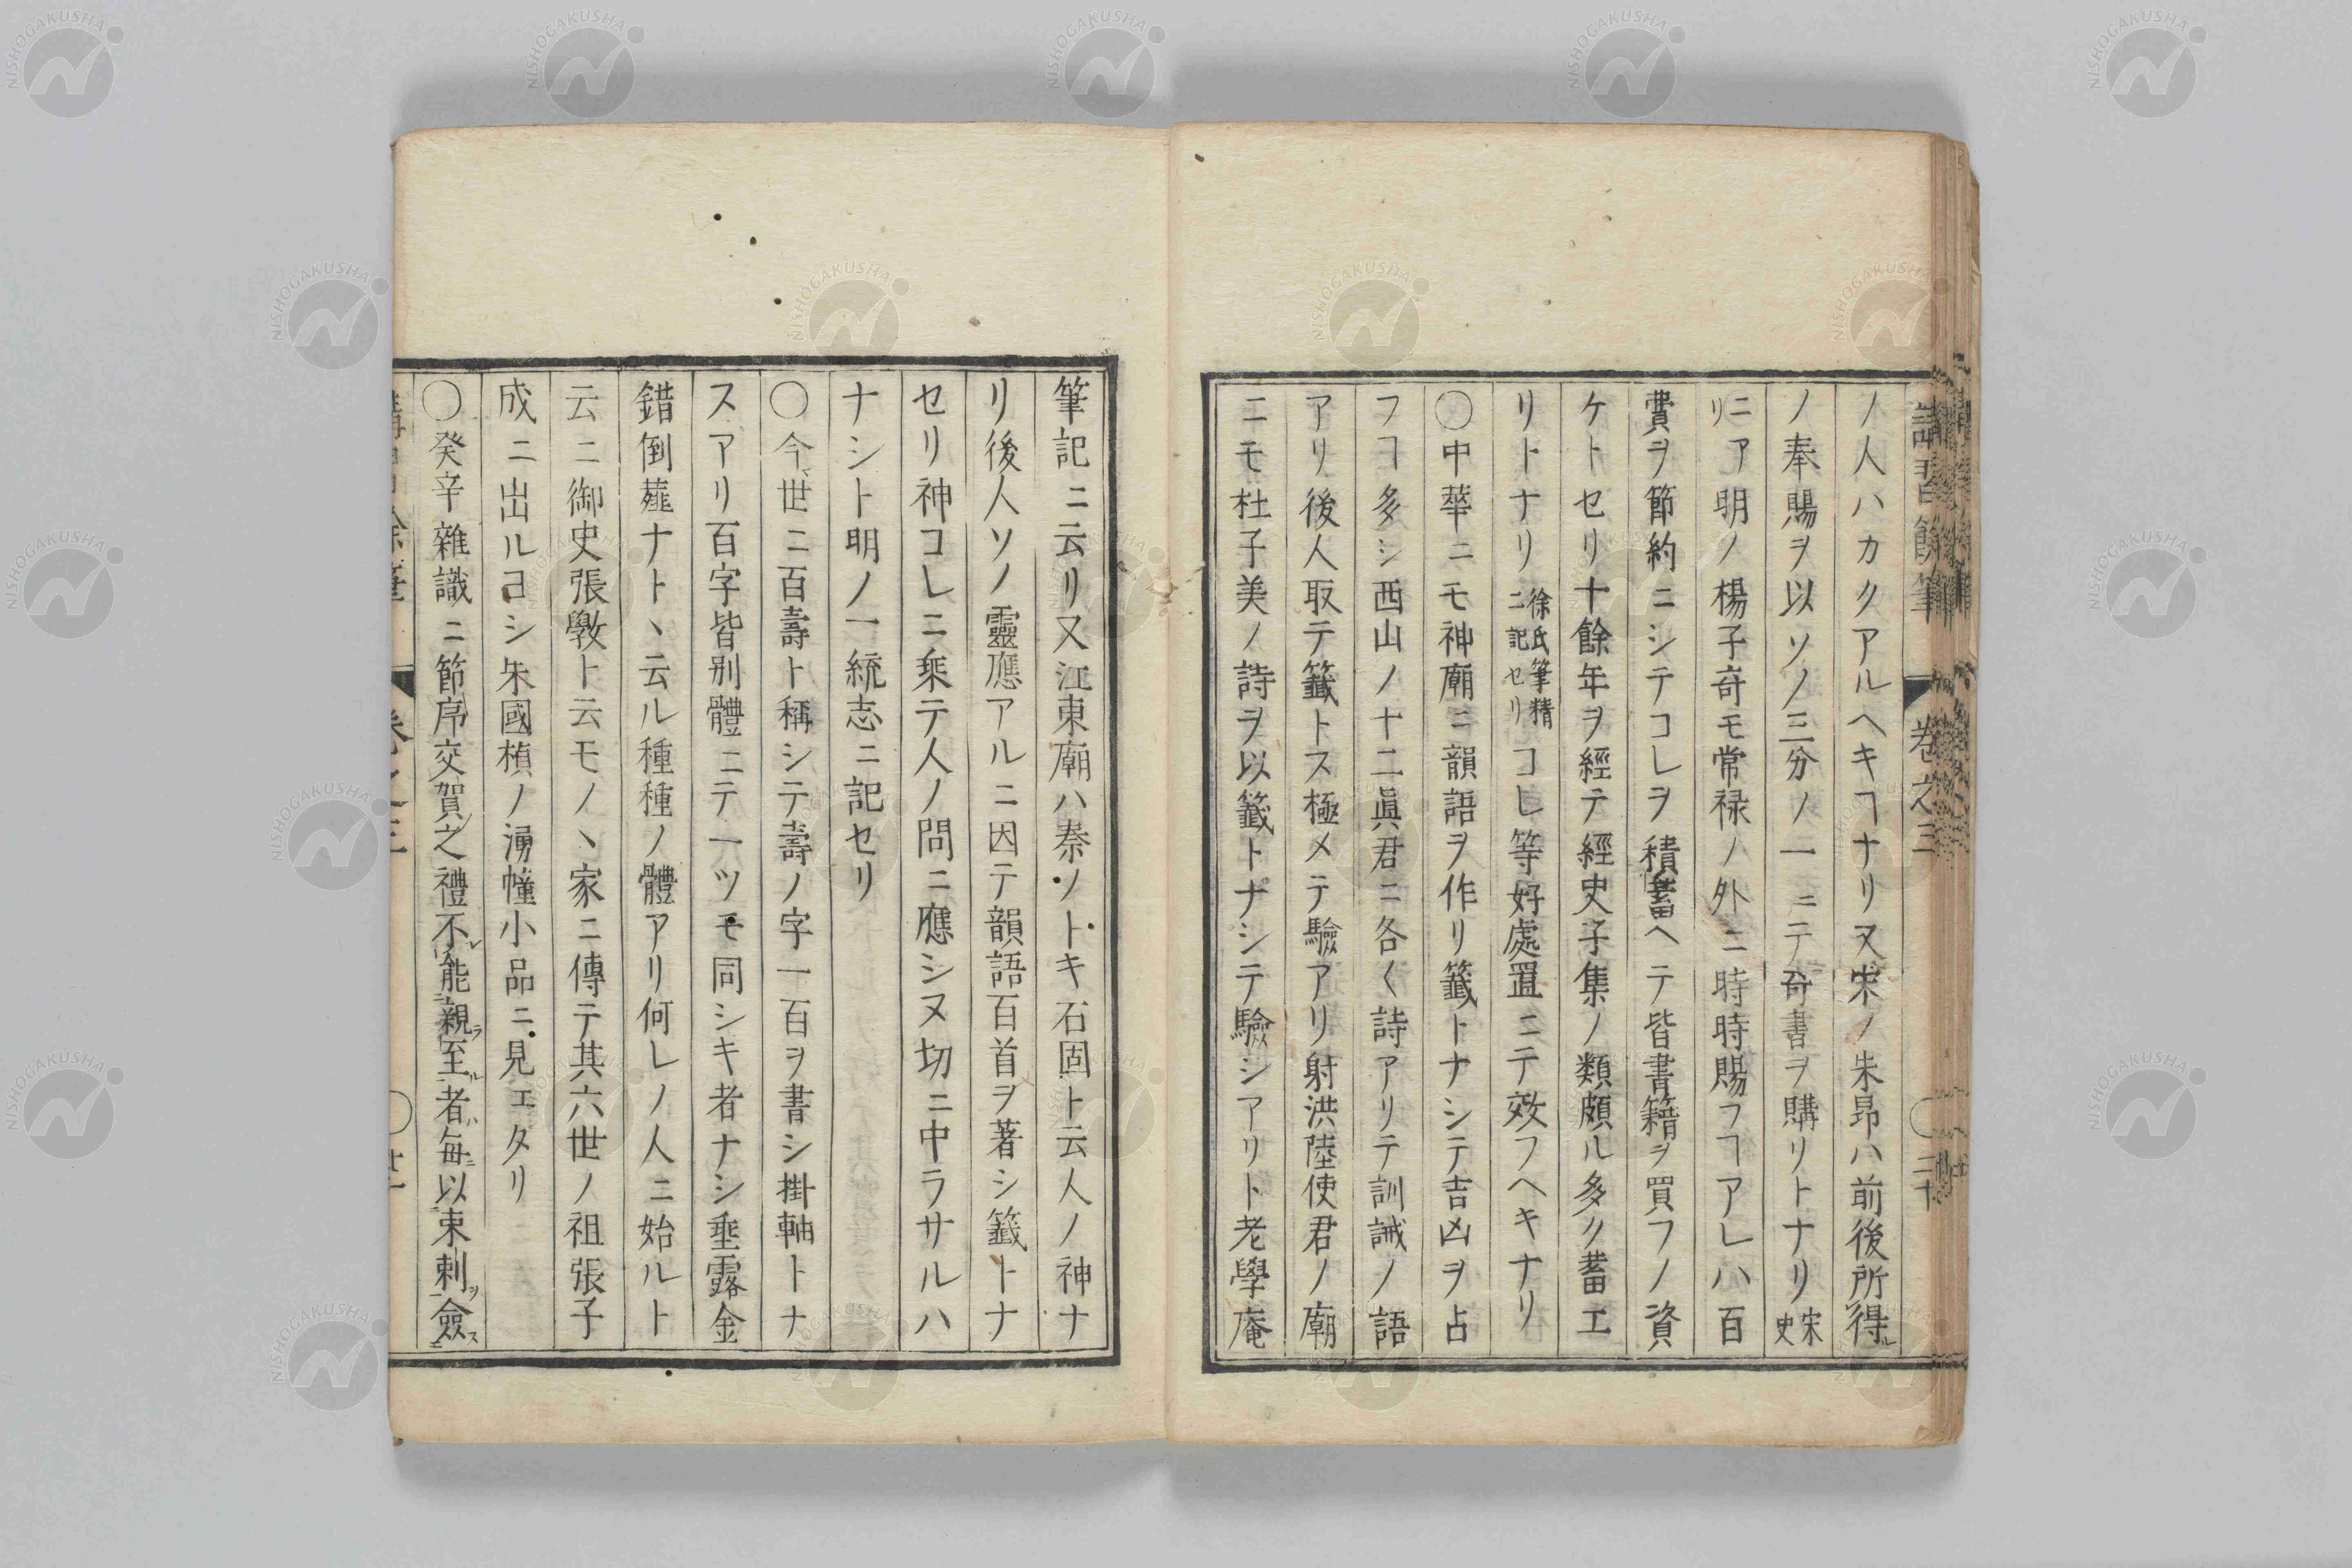 講習餘筆 卷之三 〇二十
ノ人ハカクアルヘキヿナリ又宋ノ朱昂ハ前後所得ル
ノ奉賜ヲ以ソノ三分ノ一ニテ奇書ヲ購リトナリ宋史
ニアリ明ノ楊子奇モ常禄ノ外ニ時時賜フヿアレハ百
費ヲ節約ニシテコレヲ積蓄ヘテ皆書籍ヲ買フノ資
ケトセリ十餘年ヲ經テ經史子集ノ類頗ル多ク蓄エ
リトナリ徐氏筆精ニ記セリコレ等好處置ニテ效フヘキナリ
〇中華ニモ神廟ニ韻語ヲ作リ籤トナシテ吉凶ヲ占
フヿ多シ西山ノ十二眞君ニ各〱詩アリテ訓誡ノ語
アリ後人取テ籤トス極メテ驗アリ射洪陸使君ノ廟
ニモ杜子美ノ詩ヲ以籤トナシテ驗シアリト老學庵
筆記ニ云リ又江東廟ハ秦ノトキ石固ト云人ノ神ナ
リ後人ソノ靈應アルニ因テ韻語百首ヲ著シ籤トナ
セリ神コレニ乗テ人ノ問ニ應シヌ切ニ中ラサルハ
ナシト明ノ一統志ニ記セリ
〇今世ニ百壽ト稱シテ壽ノ字一百ヲ書シ掛軸トナ
スアリ百字皆別體ニテ一ツモ同シキ者ナシ垂露金
錯倒薤ナトヽ云ル種種ノ體アリ何レノ人ニ始ルト
云ニ御史張斅ト云モノヽ家ニ傳テ其六世ノ祖張子
成ニ出ルヨシ朱國楨ノ湧幢小品ニ見エタリ
〇癸辛雜識ニ節序交賀之禮不レ能二親ラ至一ルハ者毎ニ以二束刺一ヲ僉ス二
卷之三 〇廿一